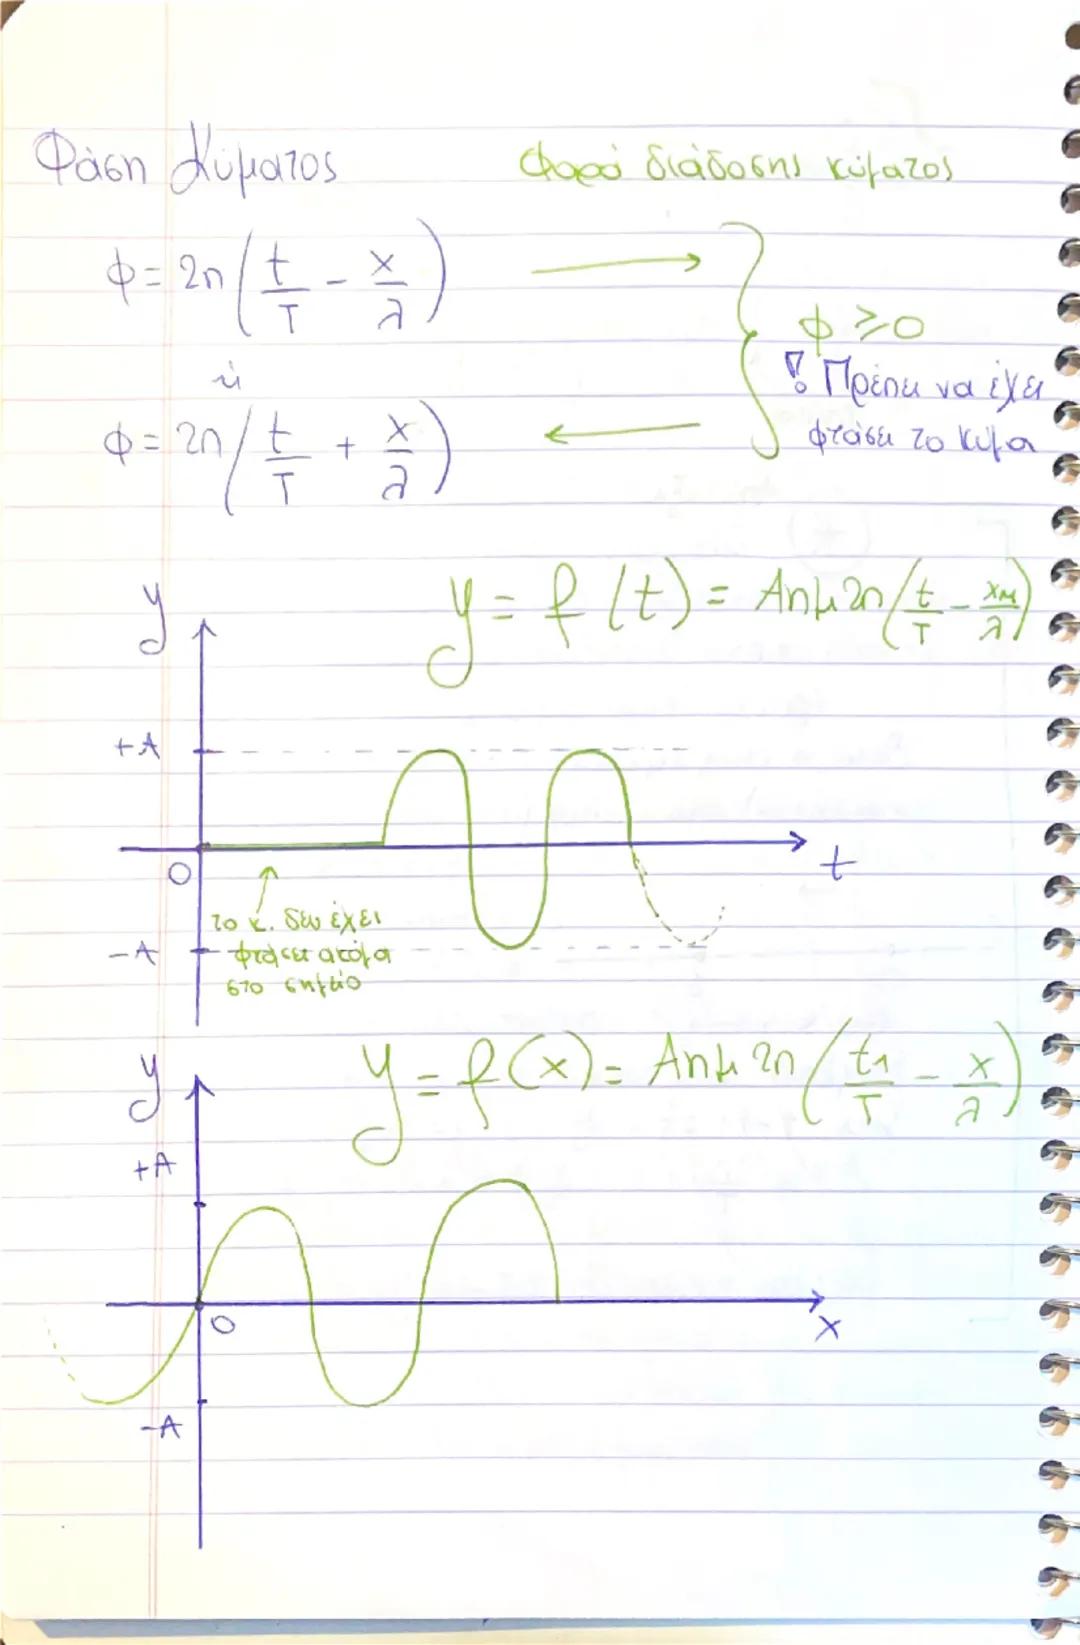 Φάση Κύματος
Φορά διάδοσης κύματος
φ = 2π (t/T - x/λ)
φ ≥ 0
ή
! Πρέπει να έχει
φτάσει το κύμα
φ = 2π (t/T + x/λ)
y = f(t) = Aημ2π (t/T - xM/λ)
y
+A
O
t
το κ. δεν έχει
φτάσει ακόμα
στο σημείο
-A
y = f(x) = Aημ2π (t1/T - x/λ)
y
+A
O
x
-A